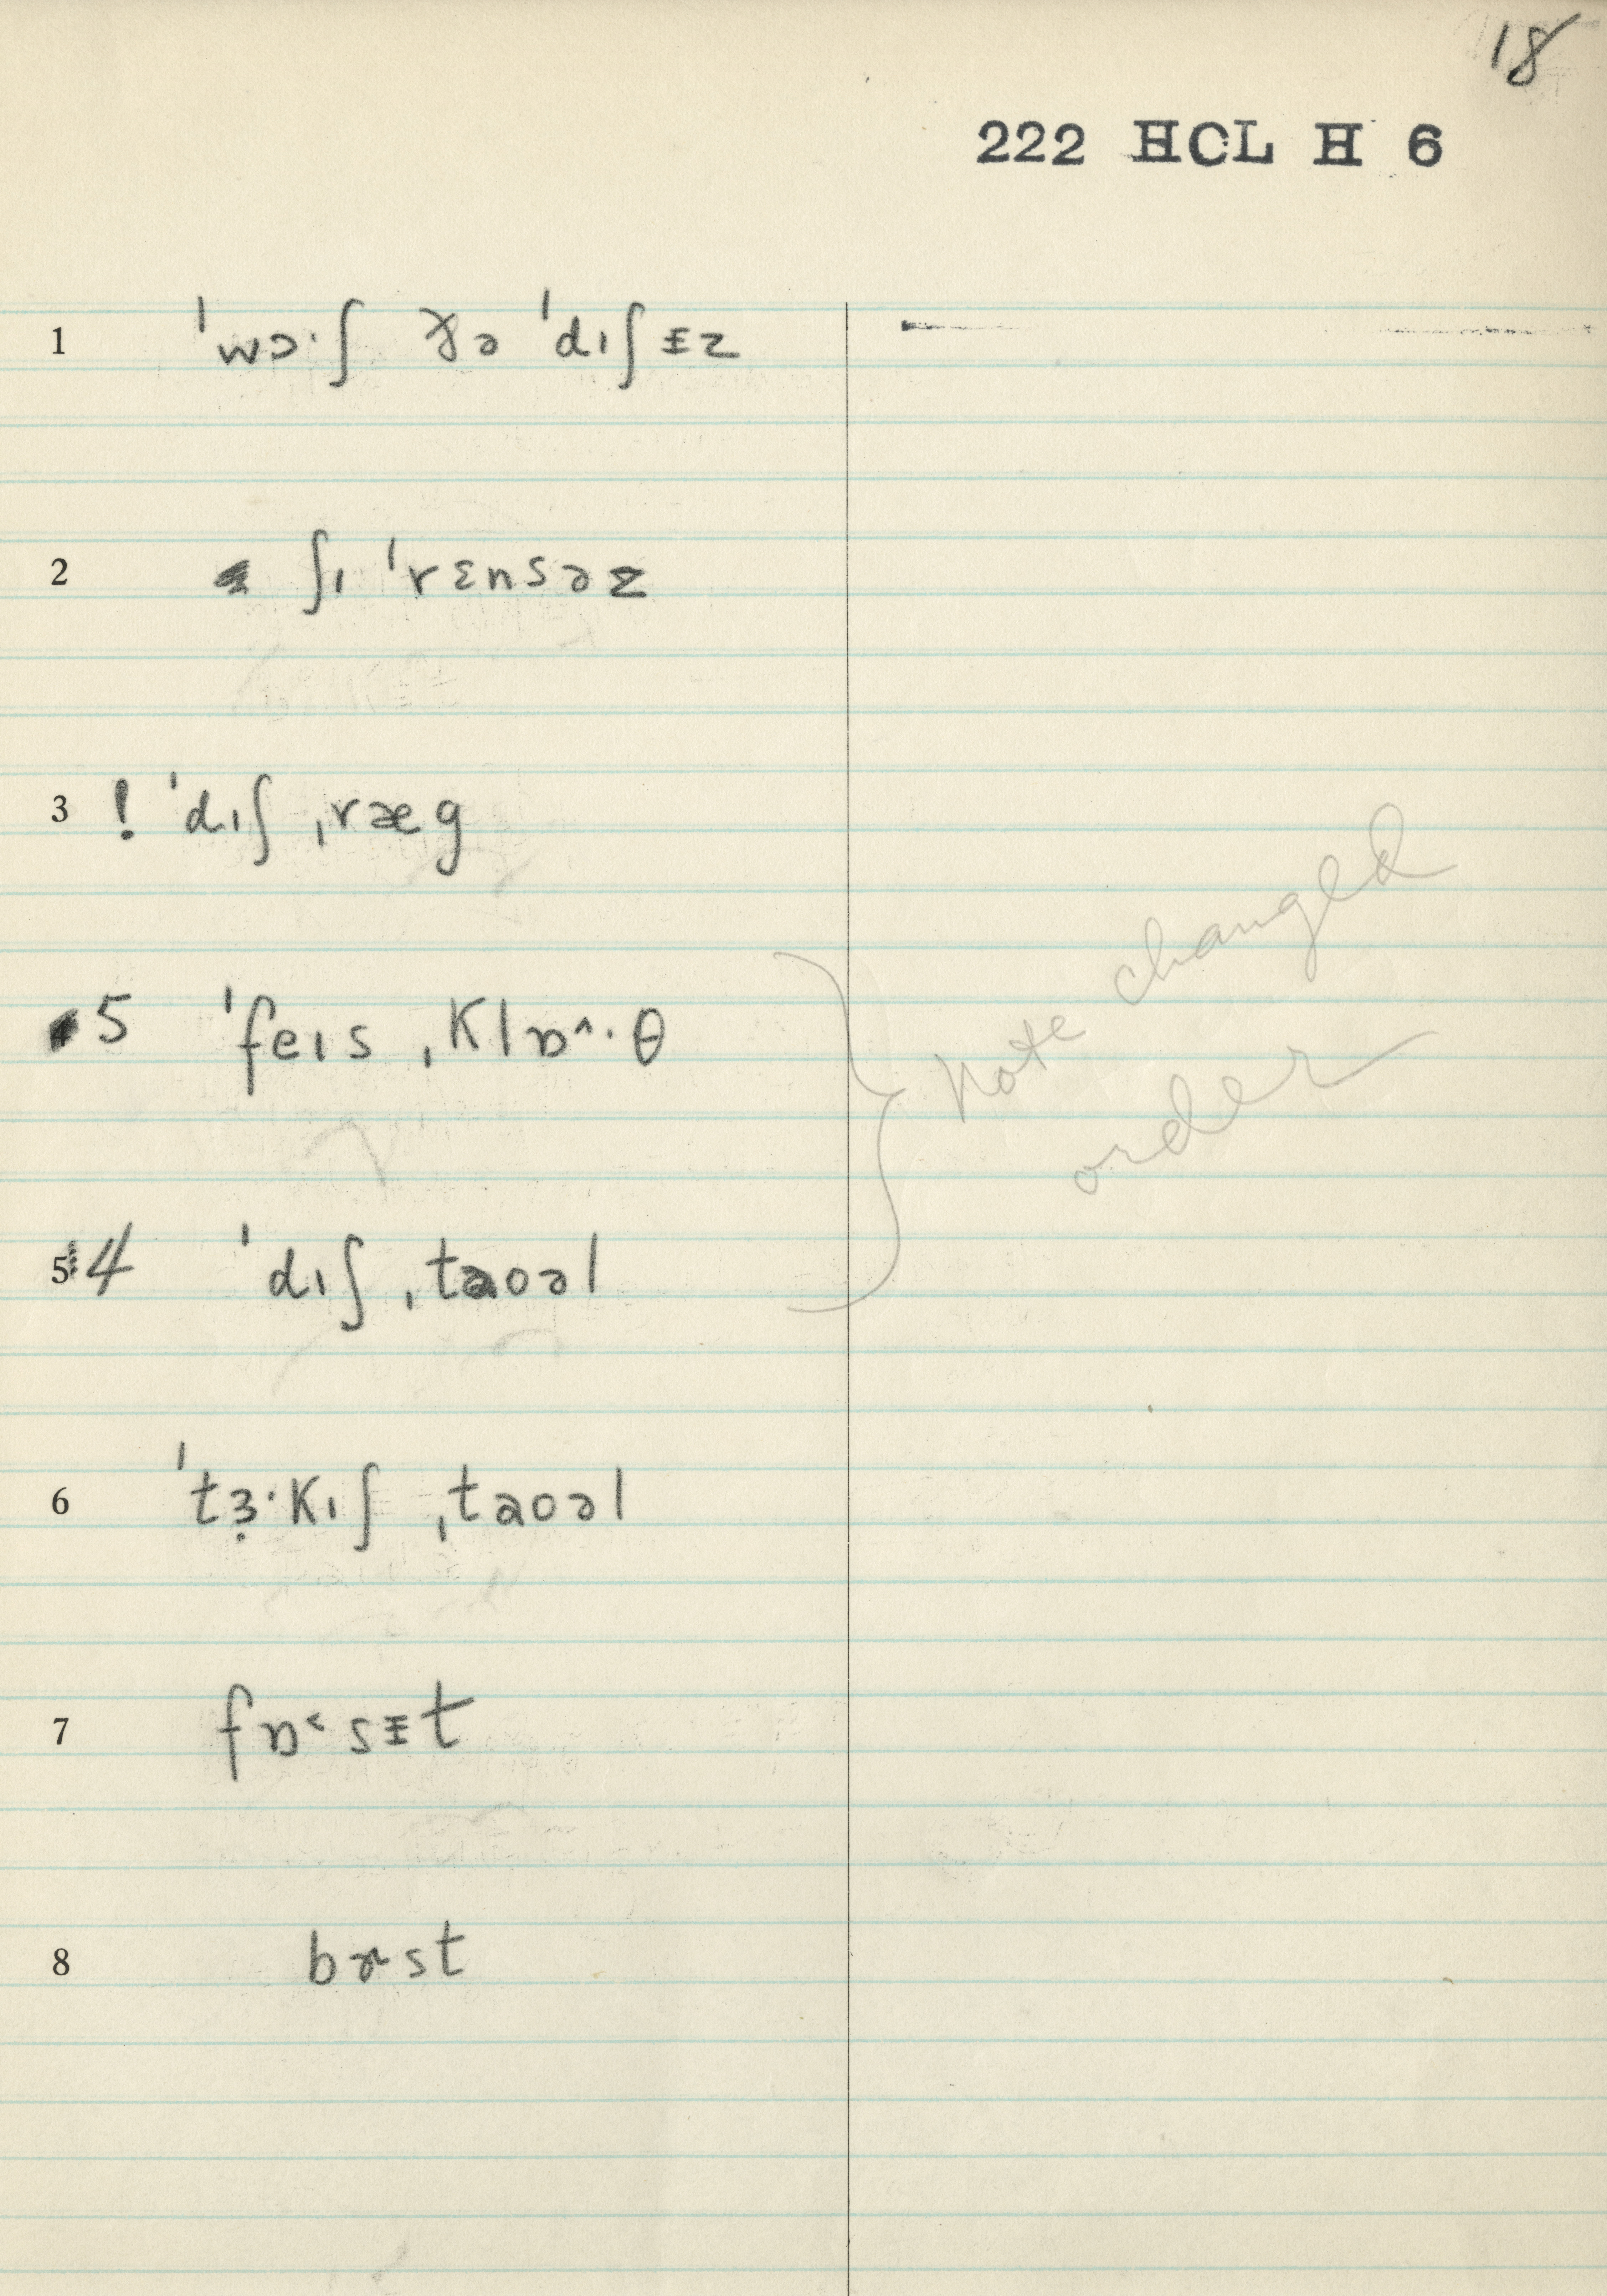 18
222 HCL H 6
1 ˈwɔ·ʃ ðə ˈdɪʃᵻz
2 ʃɪ ˈrɛnsəz
3 ! ˈdɪʃ ˌræg
5 ˈfeɪs ˌklɒ˄·θ
Note changed
order
5 4 ˈdɪʃ ˌtaʊəl
6 ˈtɜ̣·kɪʃ ˌtaʊəl
7 fɒ˂sᵻt
8 bɚst